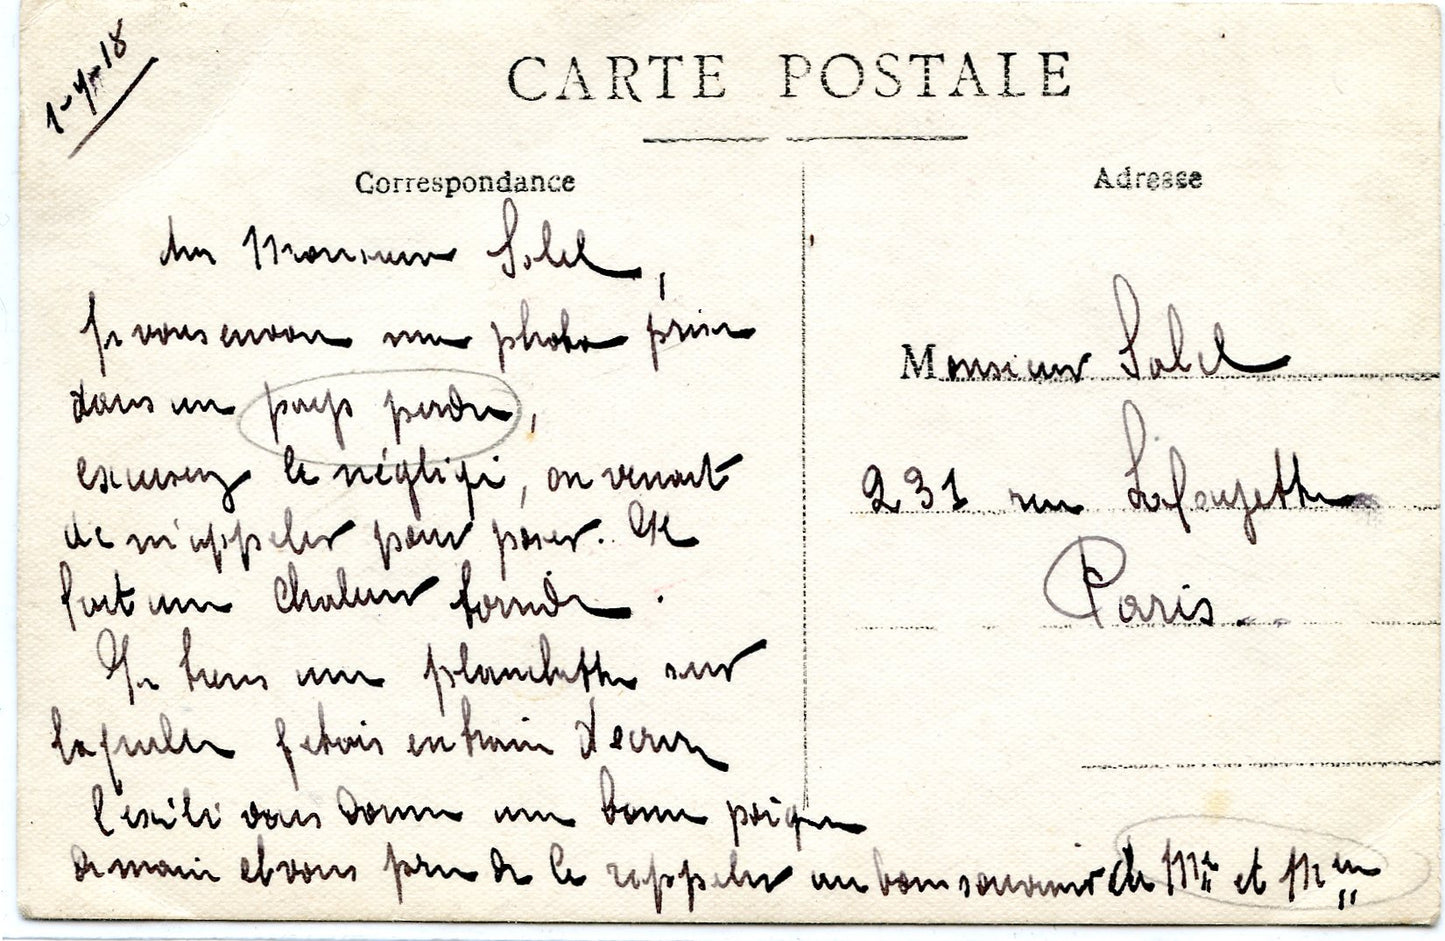 1-7-18
CARTE POSTALE
Correspondance
Adresse
cher Monsieur Solel,
Je vous envoie une photo prise
dans un pays perdu,
excusez le négligé, on venait
de m'appeler pour poser. Il
fait une chaleur torride.
Je tiens une planchette sur
laquelle j'etais en train d'ecrire
l'exilé vous donne une bonne poignée
de main et vous prie de le rappeler au bon souvenir de Mr et Mme
Monsieur Solel
231 rue Lafayette
Paris.